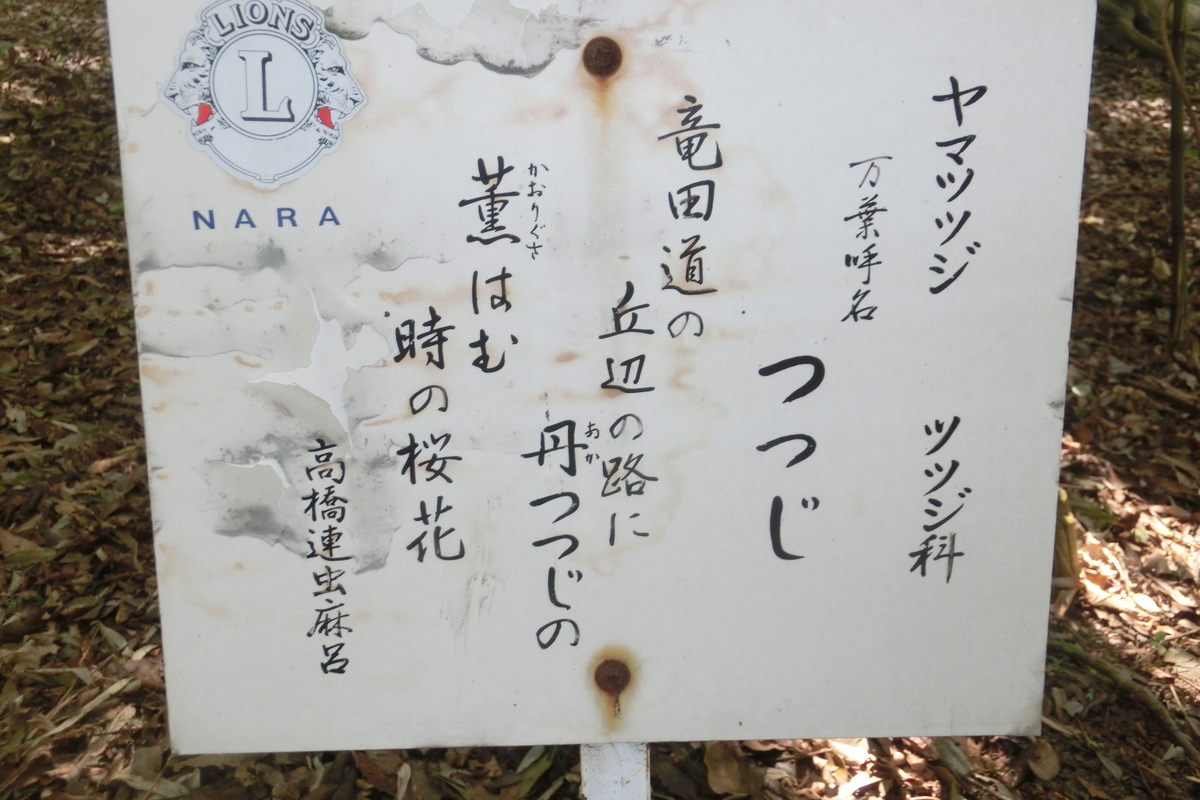 ヤマツツジ ツツジ科
万葉呼名
つつじ
竜田道の
丘辺の路に
丹つつじの
あか
薫はむ
かおりぐさ
時の桜花
高橋連虫麻呂
LIONS
L
NARA